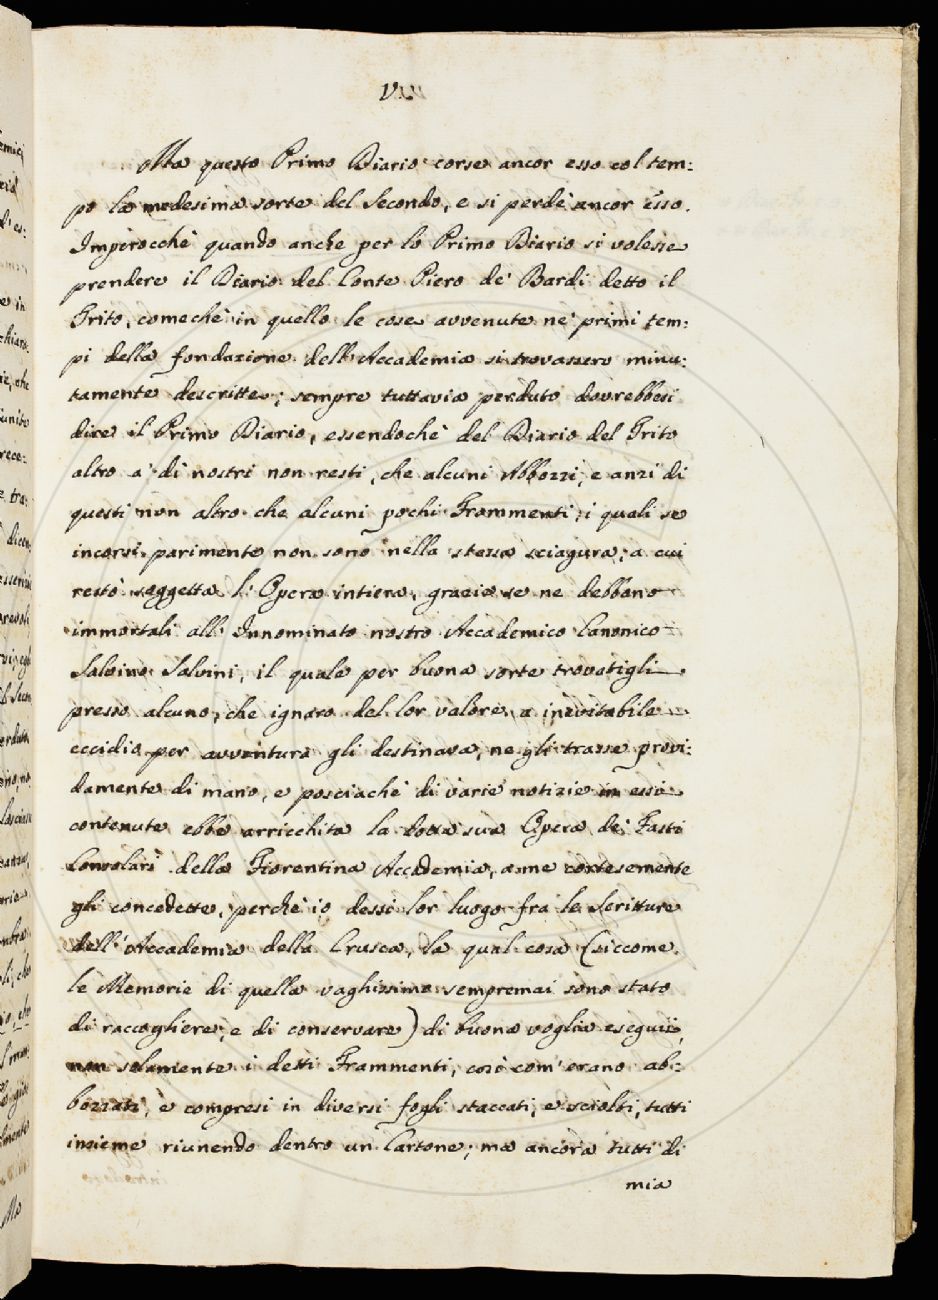 V.
Ma questo Primo Diario corse ancor esso col tem:
po la medesima sorte del Secondo, e si perdè ancor esso.
Imperocchè quando anche per lo Primo Diario si volesse
prendere il Diario del Conte Piero de' Bardi detto il
Trito, comechè in quello le cose avvenute ne' primi tem:
pi della fondazione dell'Accademia si trovassero minu:
tamente descritte; sempre tuttavia perduto dovrebbesi
dire il Primo Diario, essendochè del Diario del Trito
altro a' dì nostri non resti, che alcuni Abbozzi, e anzi di
questi non altro che alcuni pochi Frammenti, i quali se
incorsi parimente non sono nella stessa sciagura, a cui
restò soggetta l'Opera intiera, grazie se ne debbono
immortali all'Innominato nostro Accademico Canonico
Salvino Salvini, il quale per buona sorte trovatigli
presso alcuno, che ignaro del lor valore, a inevitabile
eccidio per avventura gli destinava, ne gli trasse provi:
damente di mano, e posciachè di varie notizie in essi
contenute ebbe arricchita la dotta sua Opera de' Fasti
Consolari della Fiorentina Accademia, a me cortesemente
gli concedette, perchè io dessi lor luogo fra le Scritture
dell'Accademia della Crusca, la qual cosa (siccome
le Memorie di quella vaghissimo sempremai sono stato
di raccogliere, e di conservare) di buona voglia eseguii,
non solamente i detti Frammenti, così com'erano ab:
bozzati, e compresi in diversi fogli staccati, e sciolti, tutti
insieme riunendo dentro un Cartone; ma ancora tutti di
mia